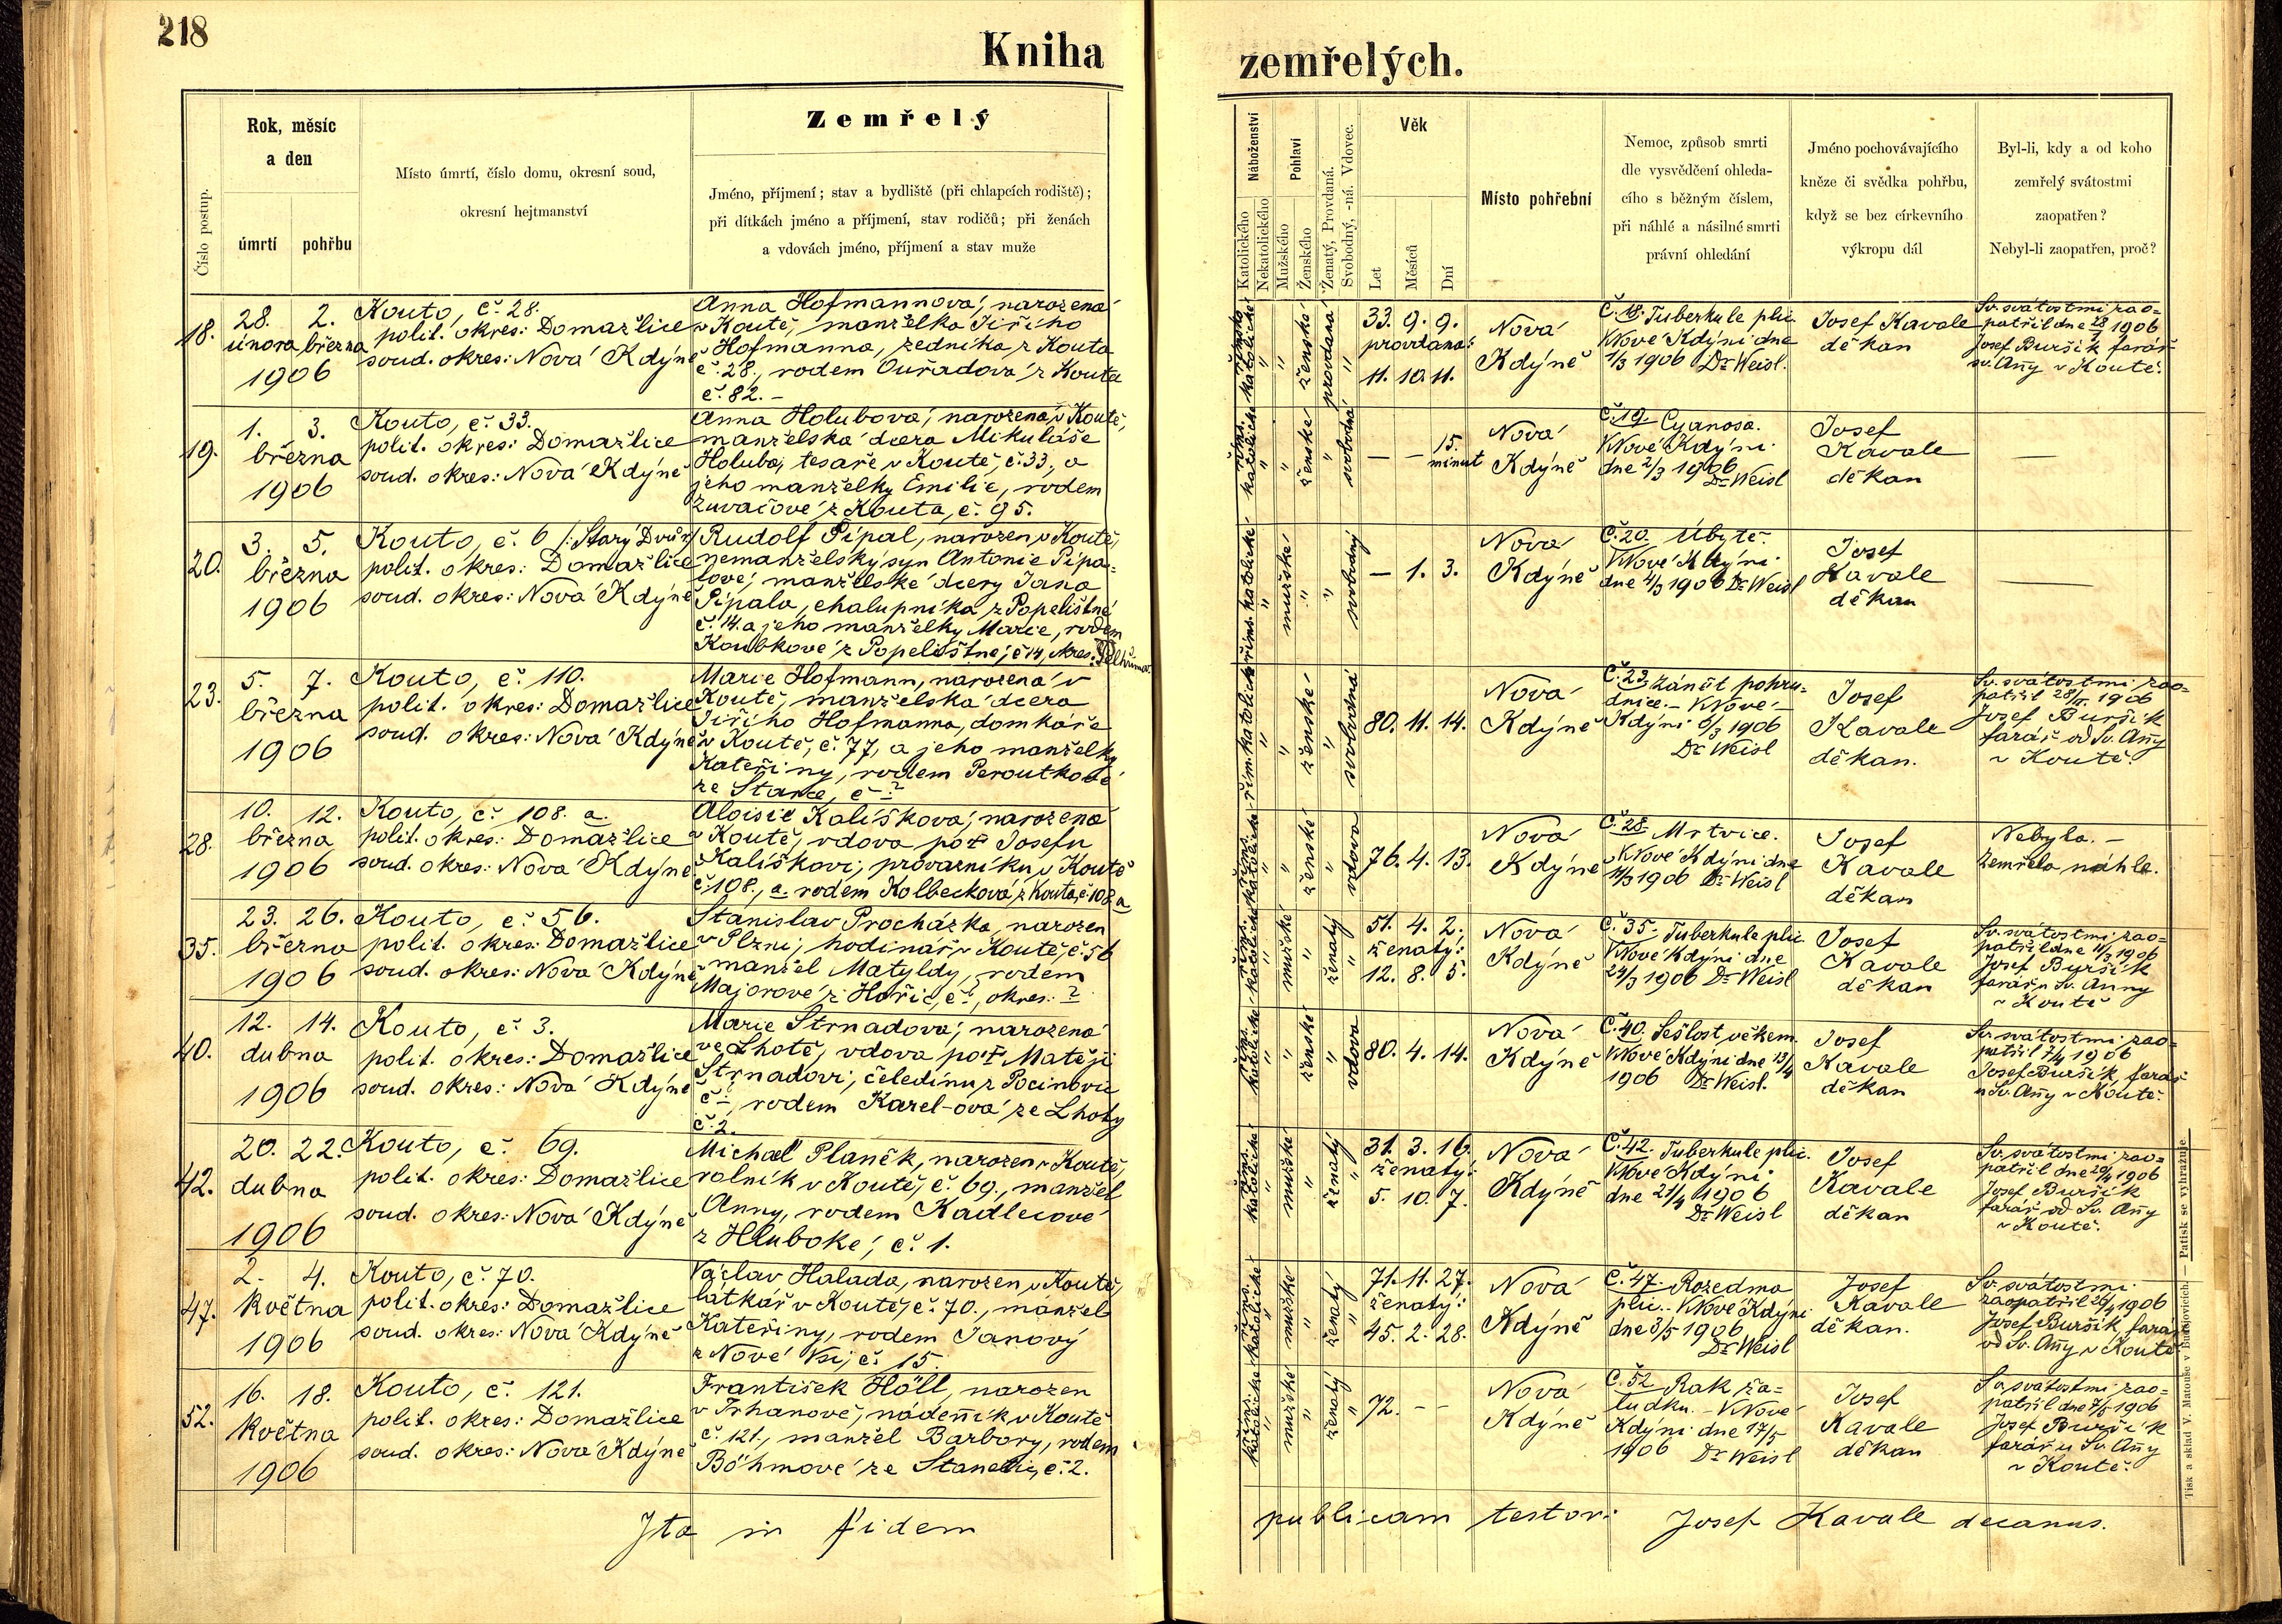 218
Kniha
zemřelých.
Číslo postup.
Rok, měsíc
a den
úmrtí
pohřbu
Místo úmrtí, číslo domu, okresní soud,
okresní hejtmanství
Zemřelý
Jméno, příjmení; stav a bydliště (při chlapcích rodiště);
při dítkách jméno a příjmení, stav rodičů; při ženách
a vdovách jméno, příjmení a stav muže
Náboženství
Katolického
Nekatolického
Pohlaví
Mužského
Ženského
Ženatý, Provdaná.
Svobodný, -ná. Vdovec.
Věk
Let
Měsíců
Dní
Místo pohřební
Nemoc, způsob smrti
dle vysvědčení ohleda-
cího s běžným číslem,
při náhlé a násilné smrti
právní ohledání
Jméno pochovávajícího
kněze či svědka pohřbu,
když se bez církevního
výkropu dál
Byl-li, kdy a od koho
zemřelý svátostmi
zaopatřen?
Nebyl-li zaopatřen, proč?
18.
28. 2.
února března
1906
Kouto, č. 28.
polit. okres: Domažlice
soud. okres: Nová Kdýně
Anna Hofmannová, narozená
v Koutě, manželka Jiřího
Hofmanna, zedníka z Kouta
č. 28., rodem Ouřadová z Kouta
č. 82. –
římsko katolické
"
"
ženské
provdaná
"
33. 9. 9.
provdaná:
11. 10. 11.
Nová
Kdýně
Č. 18. Tuberkule plic.
V Nové Kdýni dne
1/3 1906 Dr Weisl.
Josef Kavale
děkan
Sv. svátostmi zao=
patřil dne 28/II 1906
Josef Buršík farář
sv. Anny v Koutě.
19.
1. 3.
března
1906
Kouto, č. 33.
polit. okres: Domažlice
soud. okres: Nová Kdýně
Anna Holubová, narozená v Koutě,
manželská dcera Mikuláše
Holuba, tesaře v Koutě, č. 33, a
jeho manželky Emilie, rodem
Zuvačové z Kouta, č. 95.
říms. katolické
"
"
ženské
"
svobodná
— — 15.
minut
Nová
Kdýně
Č. 19. Cyanosa.
V Nové Kdýni
dne 2/3 1906
Dr Weisl
Josef
Kavale
děkan
—
20.
3. 5.
března
1906
Kouto, č. 6 /: Starý Dvůr
polit. okres: Domažlice
soud. okres: Nová Kdýně
Rudolf Pípal, narozen v Koutě,
nemanželský syn Antonie Pípa=
lové, manželské dcery Jana
Pípala, chalupníka z Popelištné
č. 14. a jeho manželky Marie, rodem
Koubkové z Popelištné, č 14, okres: Pelhřimov.
říms. katolické
"
mužské
"
"
svobodný
— 1. 3.
Nová
Kdýně
Č. 20. Úbytě.
V Nové Kdýni
dne 4/3 1906 Dr Weisl
Josef
Kavale
děkan
—
23.
5. 7.
března
1906
Kouto, č. 110.
polit. okres: Domažlice
soud. okres: Nová Kdýně
Marie Hofmann, narozená v
Koutě, manželská dcera
Jiřího Hofmanna, domkáře
v Koutě, č. 77, a jeho manželky
Kateřiny, rodem Peroutkové
ze Stanče, č ?
řím. katolické
"
"
ženské
"
svobodná
80. 11. 14.
Nová
Kdýně
Č. 23. Zánět pohru=
dnice. – V Nové
Kdýni 6/3 1906
Dr Weisl
Josef
Kavale
děkan.
Sv. svátostmi zao=
patřil 28/II. 1906
Josef Buršík
farář od Sv. Anny
v Koutě.
28.
10. 12.
března
1906
Kouto, č. 108. a.
polit. okres: Domažlice
soud. okres: Nová Kdýně
Aloisie Kalíšková, narozená
v Koutě, vdova po † Josefu
Kalíškovi, provazníku v Koutě
č. 108., a. rodem Kolbecková z Kouta, č 108. a
říms. katolické
"
"
ženské
"
vdova
76. 4. 13.
Nová
Kdýně
Č. 28. Mrtvice.
V Nové Kdýni dne
11/3 1906 Dr Weisl
Josef
Kavale
děkan
Nebyla. –
Zemřela náhle.
35.
23. 26.
března
1906
Kouto, č. 56.
polit. okres: Domažlice
soud. okres: Nová Kdýně
Stanislav Procházka, narozen
v Plzni, hodinář v Koutě, č. 56
manžel Matyldy, rodem
Majorové z Hořic, č ?, okres: ?
říms. katolické
"
mužské
"
ženatý
"
51. 4. 2.
ženatý:
12. 8. 5.
Nová
Kdýně
Č. 35. Tuberkule plic.
V Nové Kdýni dne
24/3 1906 Dr Weisl
Josef
Kavale
děkan
Sv. svátostmi zao=
patřil dne 11/3 1906
Josef Buršík
farář u Sv. Anny
v Koutě
40.
12. 14.
dubna
1906
Kouto, č. 3.
polit. okres: Domažlice
soud. okres: Nová Kdýně
Marie Strnadová, narozená
ve Lhotě, vdova po † Matěji
Strnadovi, čeledínu z Pocinovic
č ?, rodem Karel-ová ze Lhoty
č. 2.
říms. katolické
"
"
ženské
"
vdova
80. 4. 14.
Nová
Kdýně
Č. 40. Sešlost věkem.
V Nové Kdýni dne 13/4
1906 Dr Weisl.
Josef
Kavale
děkan
Sv. svátostmi zao=
patřil 7/4 1906
Josef Buršík, farář
u Sv. Anny v Koutě.
42.
20. 22.
dubna
1906
Kouto, č. 69.
polit. okres: Domažlice
soud. okres: Nová Kdýně
Michael Planěk, narozen v Koutě,
rolník v Koutě, č. 69., manžel
Anny, rodem Kadlecové
z Hluboké, č. 1.
říms. katolické
"
mužské
"
ženatý
"
31. 3. 16.
ženatý:
5. 10. 7.
Nová
Kdýně
Č. 42. Tuberkule plic.
V Nové Kdýni
dne 21/4 1906
Dr Weisl
Josef
Kavale
děkan
Sv. svátostmi zao=
patřil dne 20/4 1906
Josef Buršík
farář od Sv. Anny
v Koutě.
47.
2. 4.
května
1906
Kouto, č. 70.
polit. okres: Domažlice
soud. okres: Nová Kdýně
Václav Halada, narozen v Koutě,
látkář v Koutě, č. 70., manžel
Kateřiny, rodem Janový
z Nové Vsi, č. 15.
říms. katolické
"
mužské
"
ženatý
"
71. 11. 27.
ženatý:
45. 2. 28.
Nová
Kdýně
Č. 47. Rozedma
plic. – V Nové Kdýni
dne 3/5 1906
Dr Weisl
Josef
Kavale
děkan.
Sv. svátostmi
zaopatřil 26/4 1906
Josef Buršík, farář
od Sv. Anny v Koutě
52.
16. 18.
května
1906
Kouto, č. 121.
polit. okres: Domažlice
soud. okres: Nová Kdýně
František Höll, narozen
v Trhanově, nádenník v Koutě
č. 121., manžel Barbory, rodem
Böhmové ze Stanetic, č. 2.
říms. katolické
"
mužské
"
ženatý
"
72. – –
Nová
Kdýně
Č. 52 Rak ža=
ludku. – V Nové
Kdýni dne 17/5
1906 Dr Weisl
Josef
Kavale
děkan
Sv. svátostmi zao=
patřil dne 7/5 1906
Josef Buršík
farář u Sv. Anny
v Koutě.
Ita in fidem publicam testor: Josef Kavale decanus.
Tisk a sklad V. Matouše v Budějovicích. — Patisk se vyhražuje.